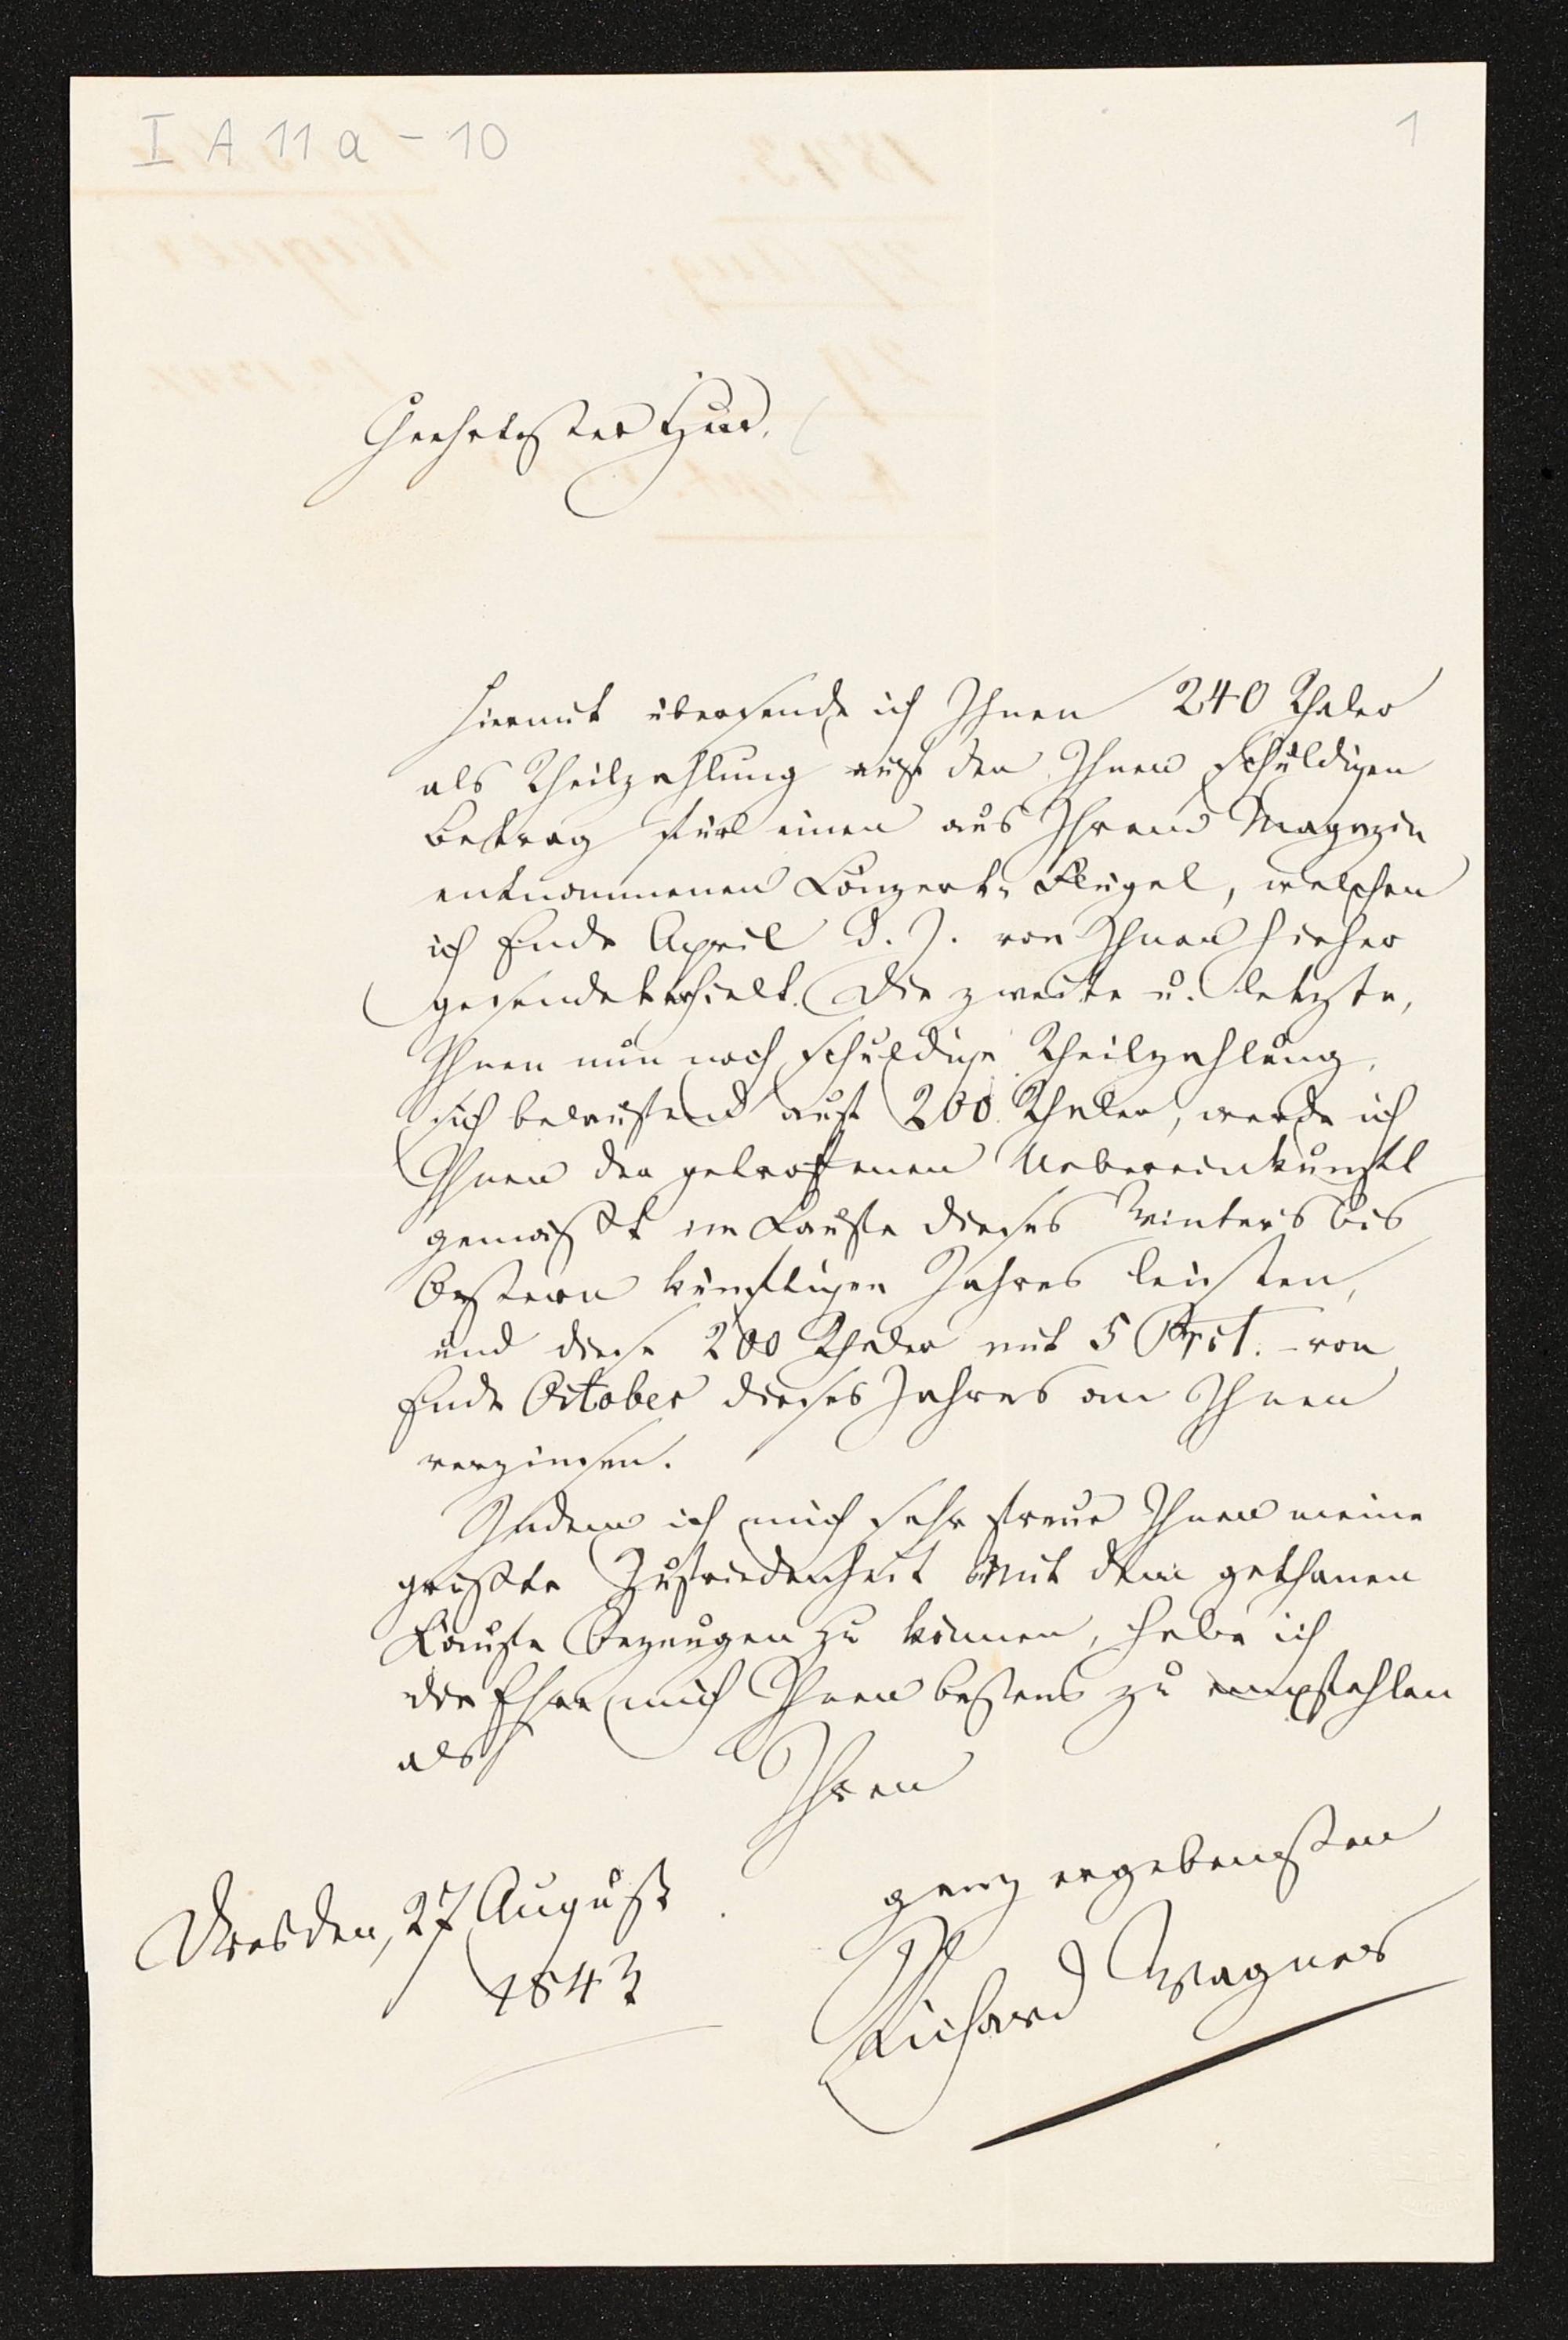 I A 11 a - 10
1
Geehrtester Herr,
hiermit übersende ich Ihnen 240 Thaler
als Theilzahlung auf den Ihnen schuldigen
Betrag für einen aus Ihrem Magazin
entnommenen Conzert-Flügel, welchen
ich Ende April d. J. von Ihnen hieher
gesendet erhielt. Die zweite u. letzte,
Ihnen nun noch schuldige Theilzahlung,
sich belaufend auf 200 Thaler, werde ich
Ihnen der getroffenen Uebereinkunft
gemäß im Laufe dieses Winters bis
Ostern künftigen Jahres leisten,
und diese 200 Thaler mit 5 Prct. von
Ende October dieses Jahres an Ihnen
verzinsen.
Indem ich mich sehr freue Ihnen meine
größte Zufriedenheit mit dem gethanen
Kaufe bezeugen zu können, habe ich
die Ehre mich Ihnen bestens zu empfehlen
als
Ihren
ganz ergebensten
Richard Wagner
Dresden, 27 August
1843